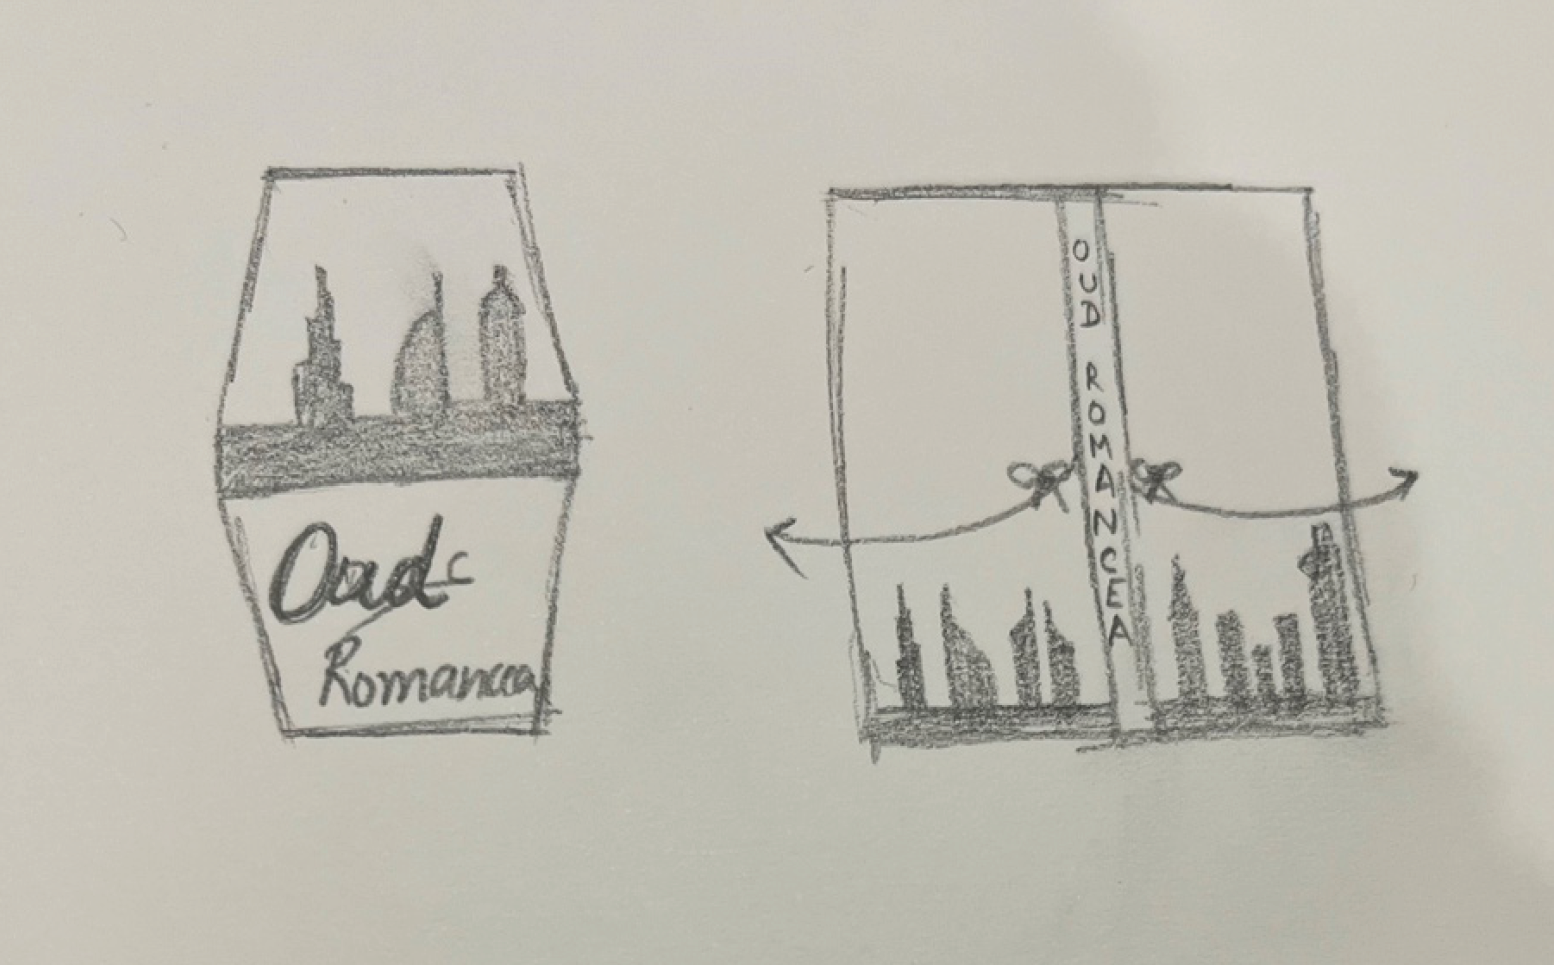 Oud
Romancea
OUD ROMANCEA